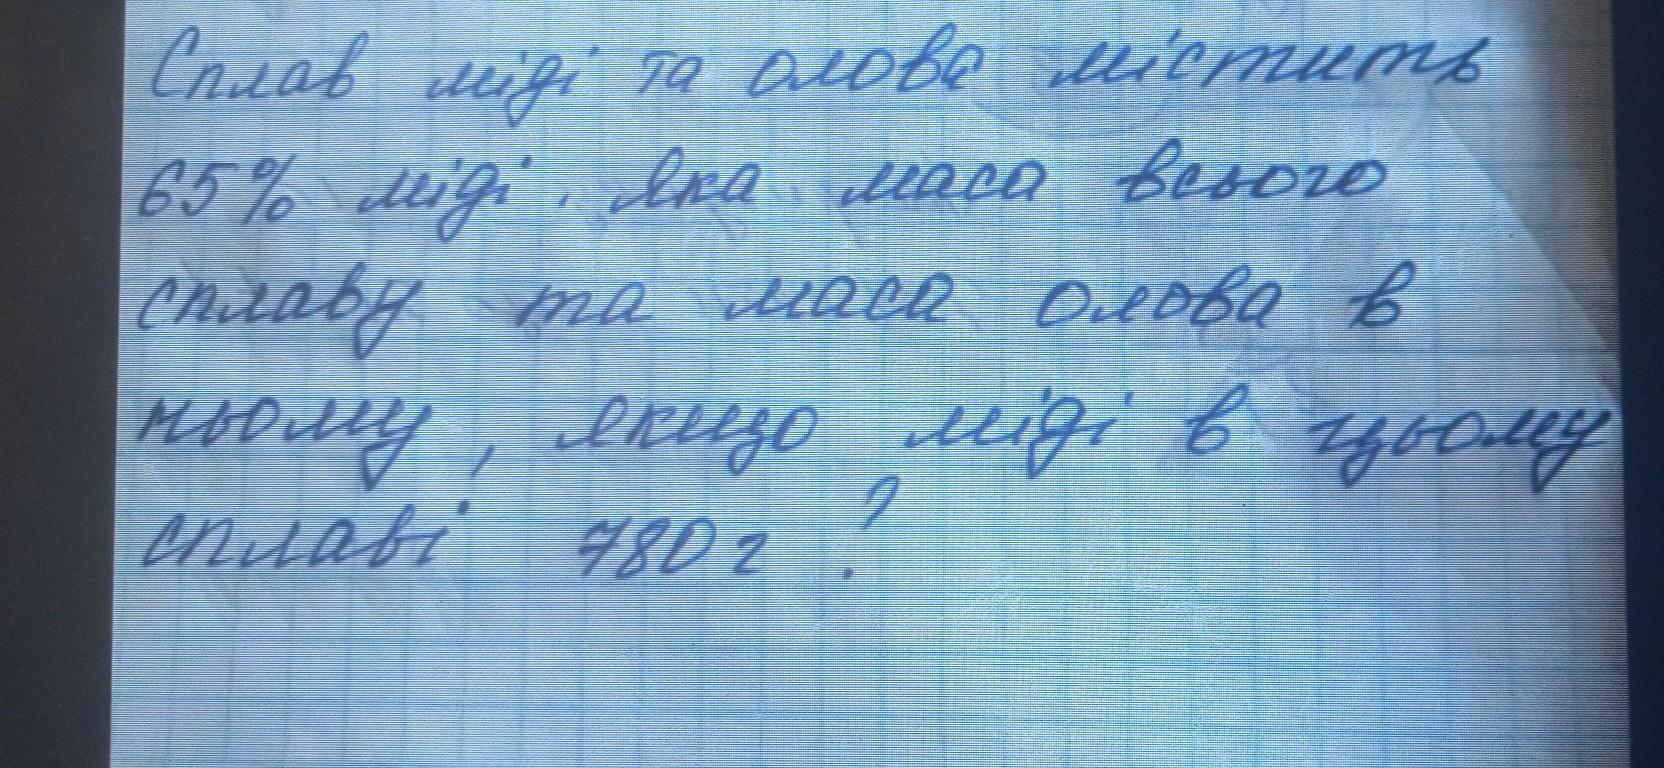 Сплав міді та олова містить
65% міді. Яка маса всього
сплаву та маса олова в
ньому, якщо міді в цьому
сплаві 780 г ?